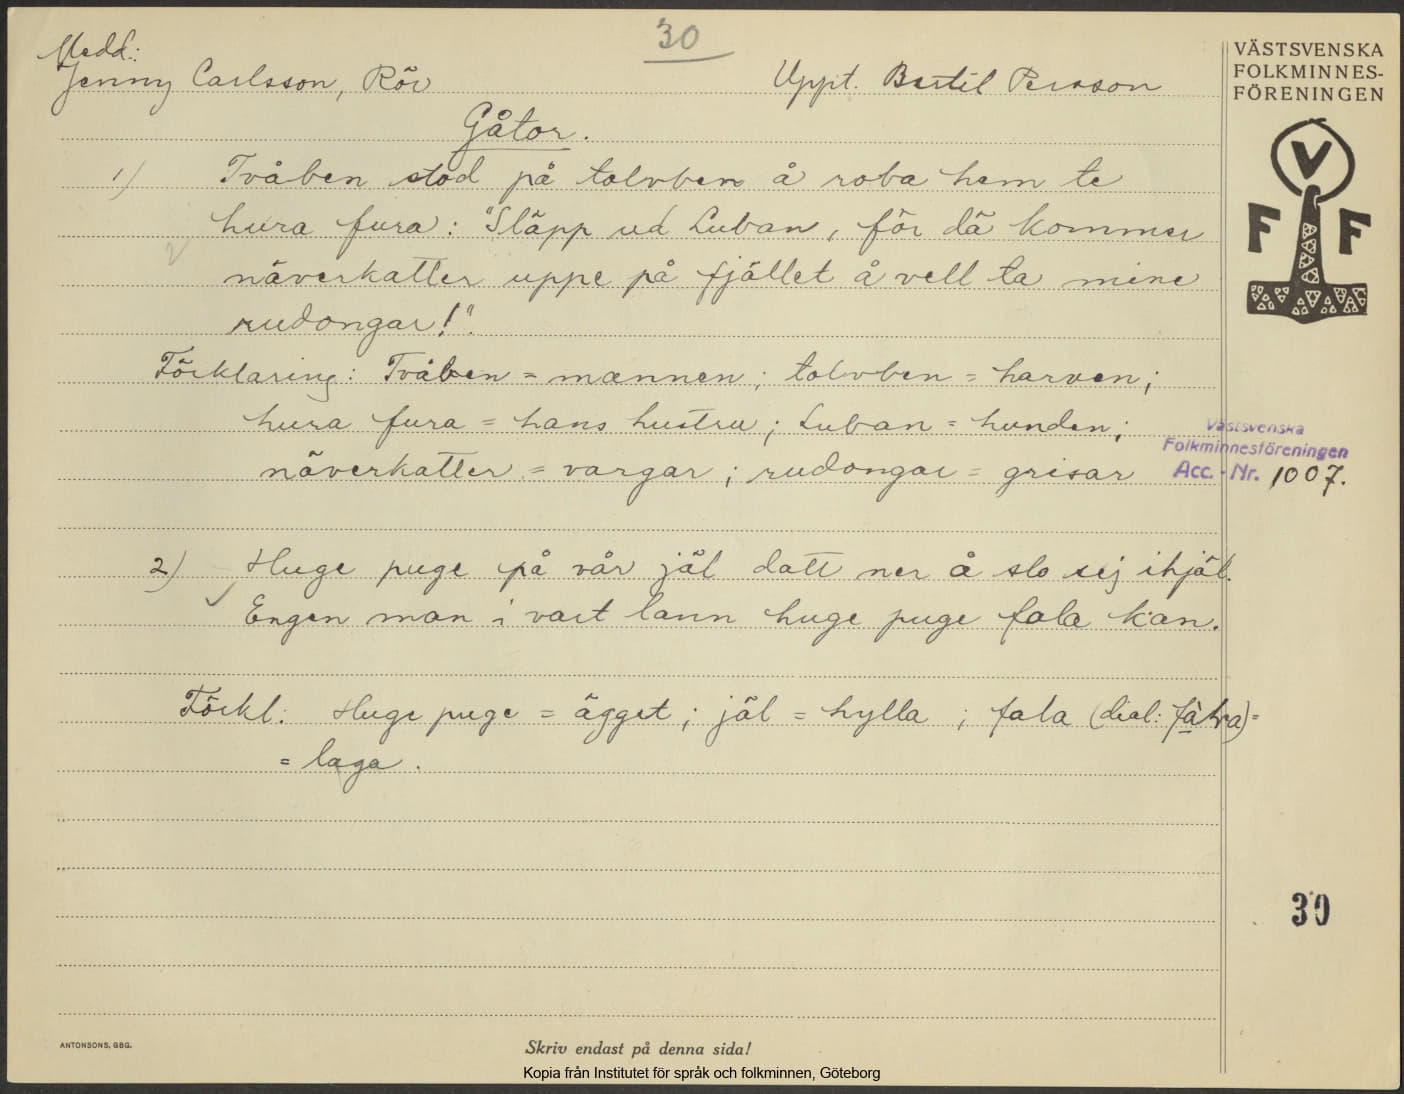 30
Medd.:
Jenny Carlsson, Rör
Uppt. Bertil Persson
VÄSTSVENSKA
FOLKMINNES-
FÖRENINGEN
V
F F
Gåtor.
1) Tvåben stod på tolvben å roba hem te
hura fura: "Släpp ud Luban, för dä kommer
näverkatter uppe på fjället å vell ta mine
rudongar!".
Förklaring: Tvåben = mannen; tolvben = harven;
hura fura = hans hustru; Luban = hunden;
näverkatter = vargar; rudongar = grisar
Västsvenska
Folkminnesföreningen
Acc.-Nr. 1007.
2) Huge puge på vår jäl datt ner å slo sej ihjäl.
Engen man i vart lann huge puge fala kan.
Förkl: Huge puge = ägget; jäl = hylla; fala (dial: =
= laga.
30
ANTONSONS, GBG.
Skriv endast på denna sida!
Kopia från Institutet för språk och folkminnen, Göteborg